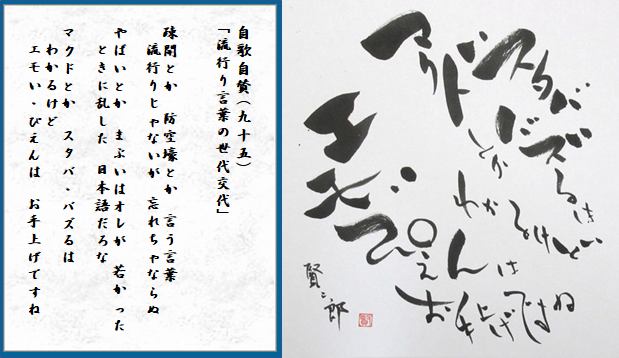 自歌自賛(九十五)
「流行り言葉の世代交代」
疎開とか 防空壕とか 言う言葉
流行りじゃないが 忘れちゃならぬ
やばいとか まぶいはオレが 若かった
ときに乱した 日本語だろな
マクドとか スタバ・バズるは
わかるけど
エモい・ぴえんは お手上げですね
マクドとか
スタバ
バズるは
わかるけど
エモい
ぴえんは
お手上げですね
賢二郎